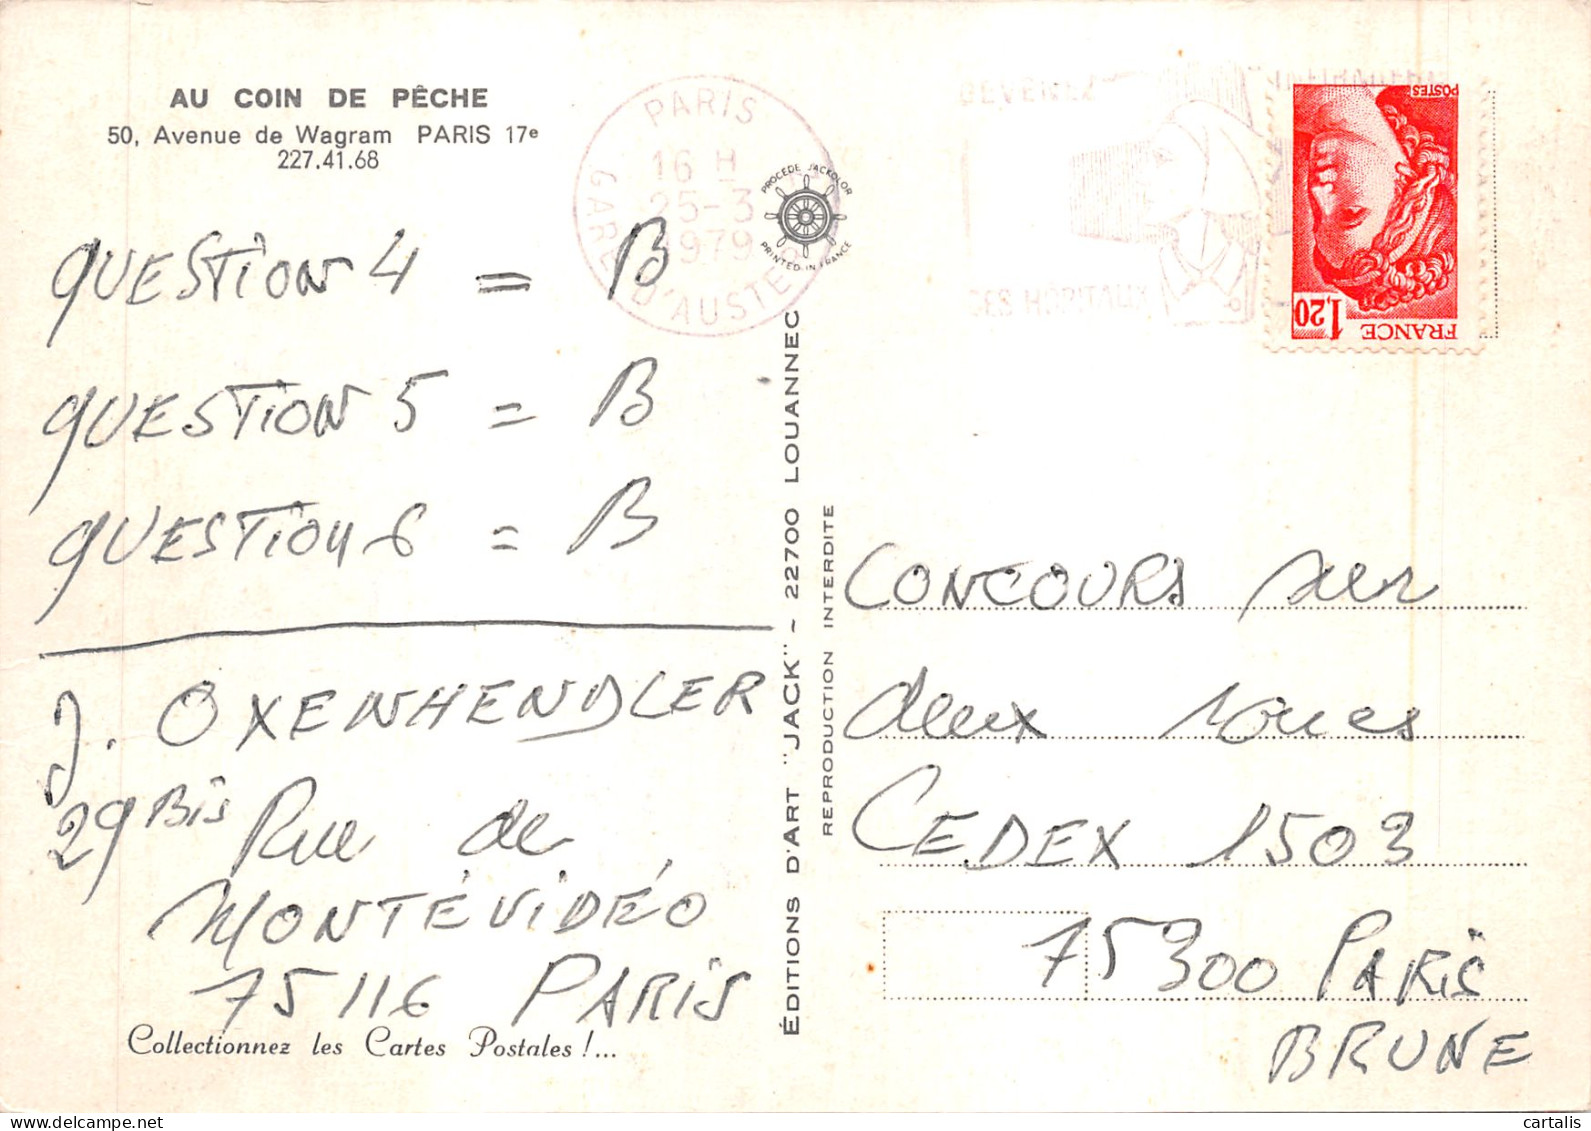 AU COIN DE PÊCHE
50, Avenue de Wagram PARIS 17e
227.41.68
QUESTION 4 = B
QUESTION 5 = B
QUESTION 6 = B
J. OXENHENDLER
29 Bis Rue de
MONTÉVIDÉO
75116 PARIS
Collectionnez les Cartes Postales !...
PARIS
16 H
25-3
1979
GARE D'AUSTER
PROCÉDÉ JACKOLOR
PRINTED IN FRANCE
ÉDITIONS D'ART "JACK" - 22700 LOUANNEC
REPRODUCTION INTERDITE
DEVENEZ
DES HÔPITAUX
POSTES
1,20
FRANCE
CONCOURS sur
deux roues
CEDEX 1503
75300 PARIS
BRUNE
cartalis